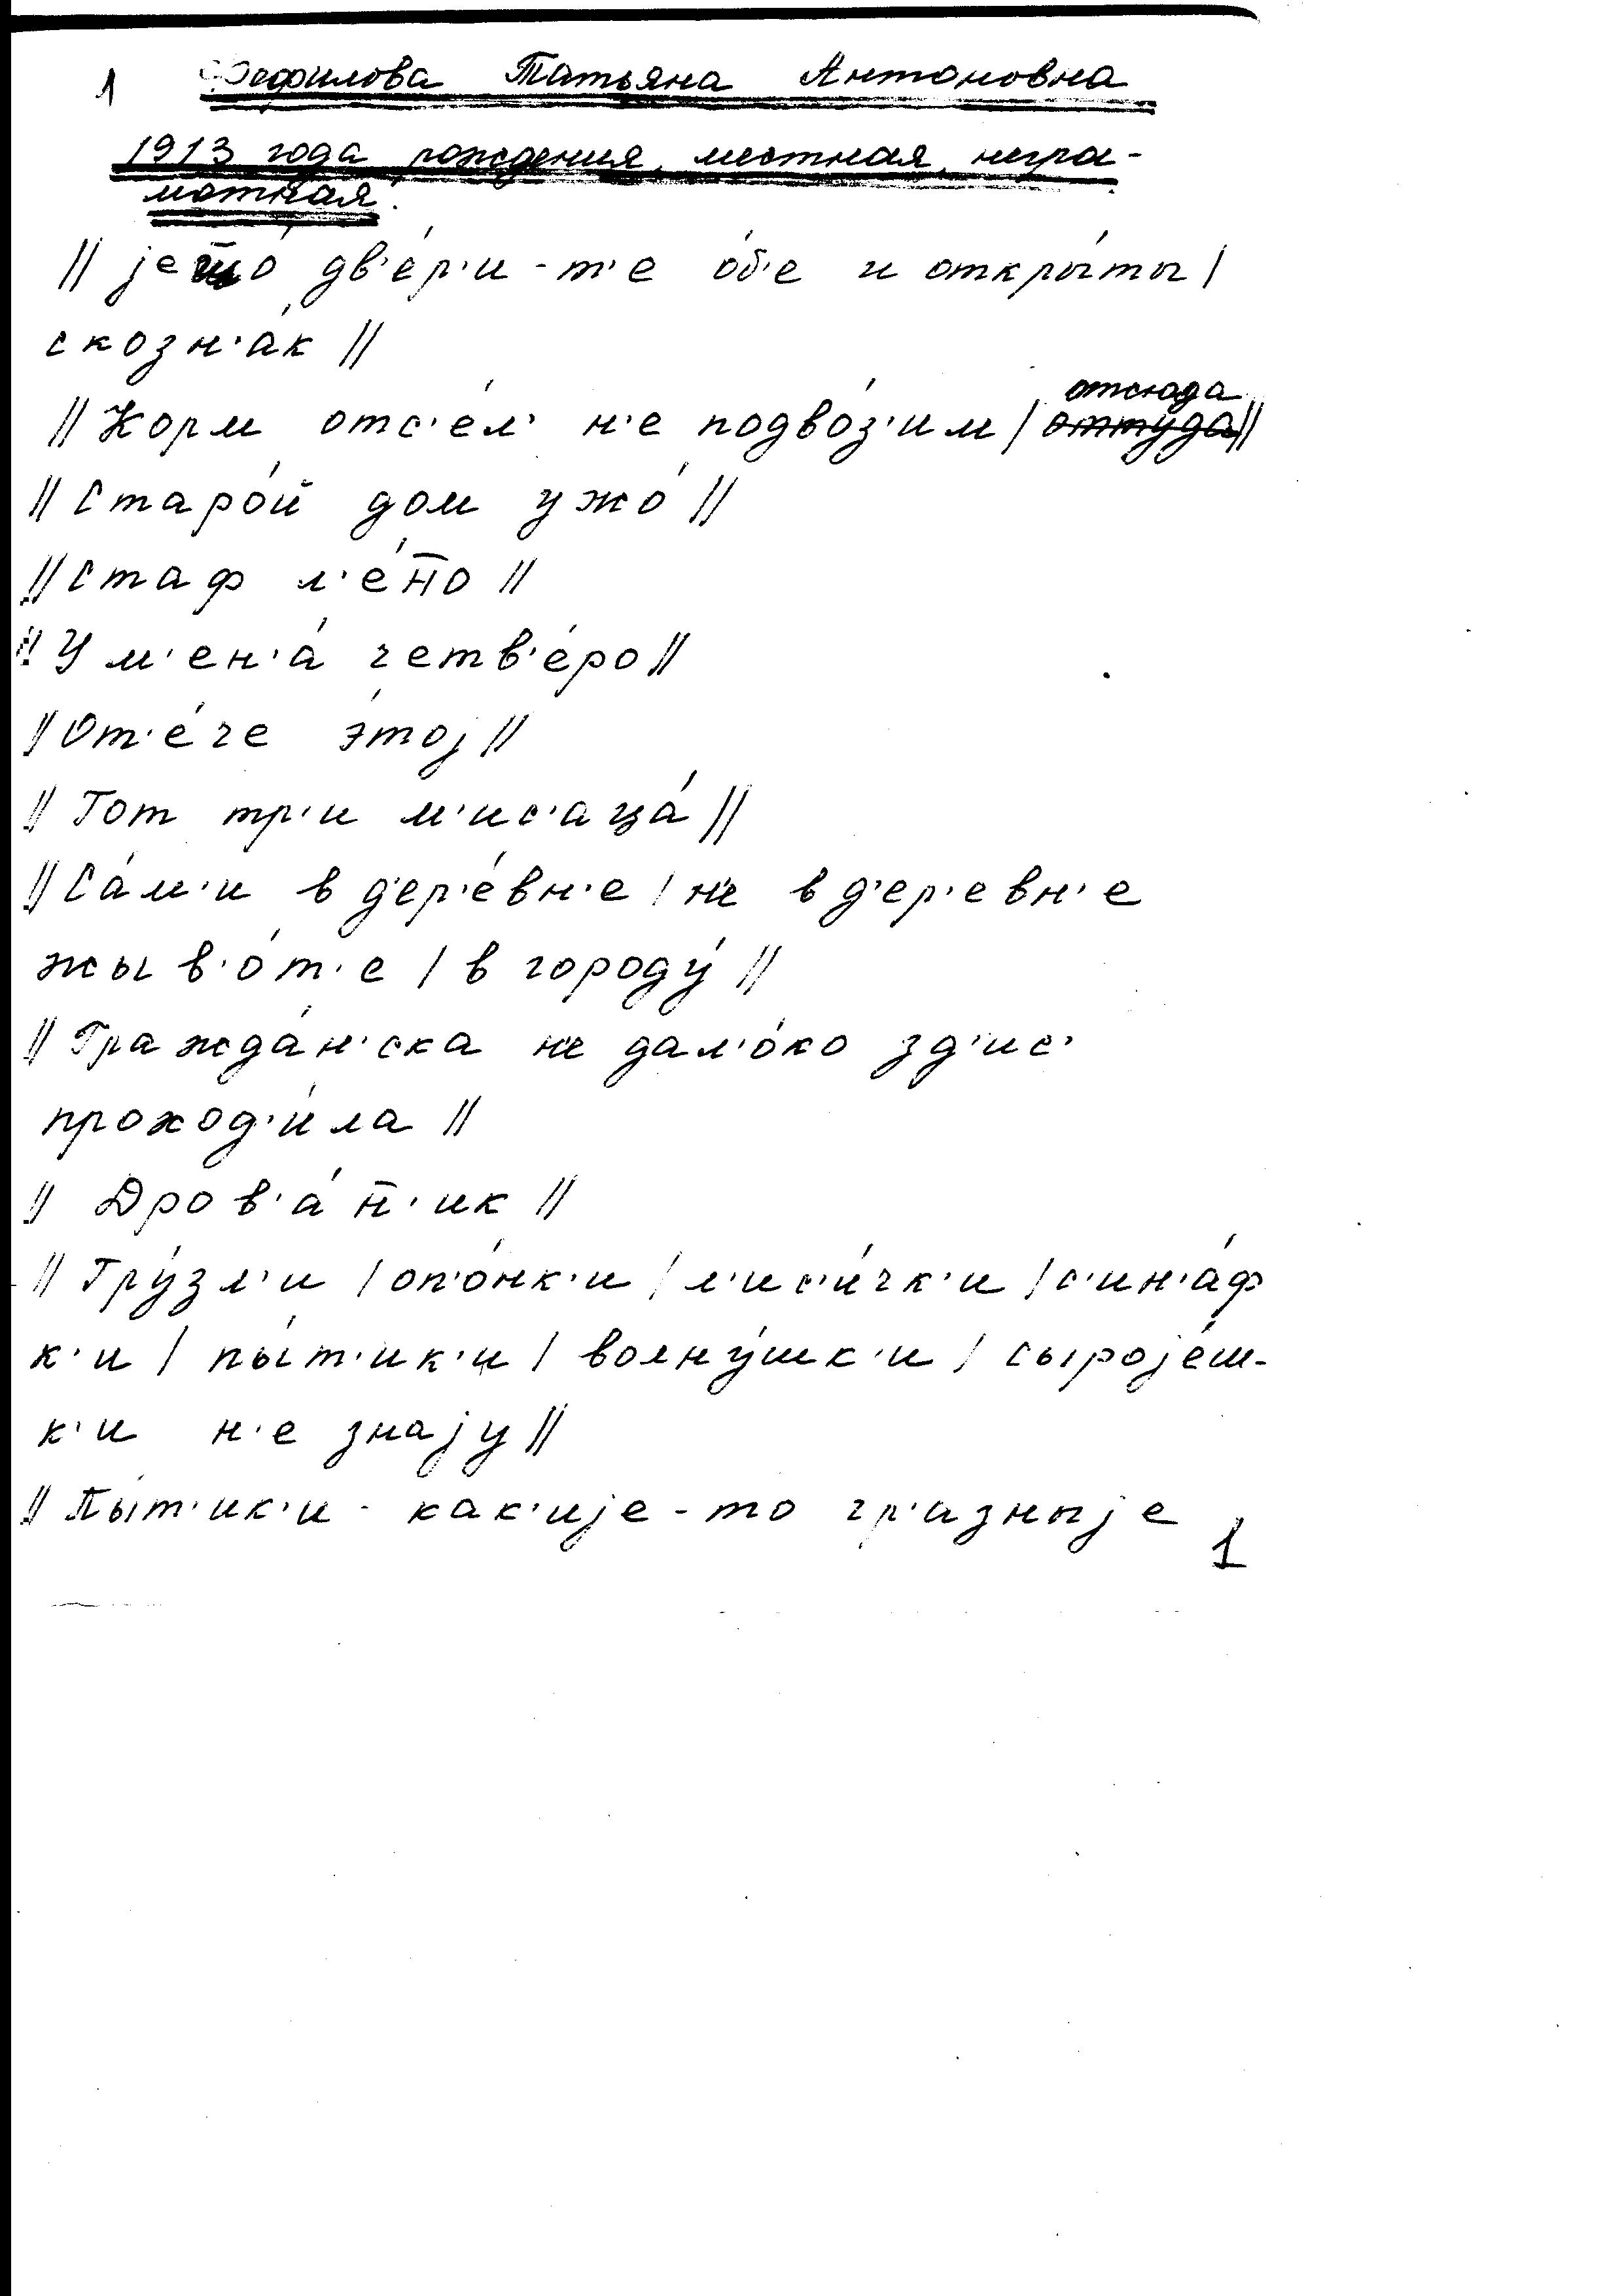 1 Фефилова Татьяна Антоновна
1913 года рождения, местная, негра-
мотная.
|| jешо́ дв'е́р'и-т'е о́б'е и откры́ты |
скозн'а́к ||
отсюда
|| Корм отс'е́л' н'е подво́з'им | оттуда ||
|| Старо́й дом ужо́ ||
|| Стаф л'е́н̄о ||
|| У м'ен'а́ четв'е́ро ||
|| От'е́че э́тоj ||
|| Гот тр'и м'ис'аца́ ||
|| Са́м'и в д'ер'е́вн'е | н'е в д'ер'евн'е
жыв'о́т'е | в городу́ ||
|| Гражда́н'ска н'е дал'о́ко зд'ис'
проход'и́ла ||
|| Дров'а́н̄'ик ||
|| Гру́зл'и | оп'о́нк'и | л'ис'и́чк'и | с'ин'а́ф
к'и | пы́т'ик'и | волну́шк'и | сыроjе́ш-
к'и н'е знаjу ||
|| Пы́т'ик'и - как'иjе-то гр'азныjе
1